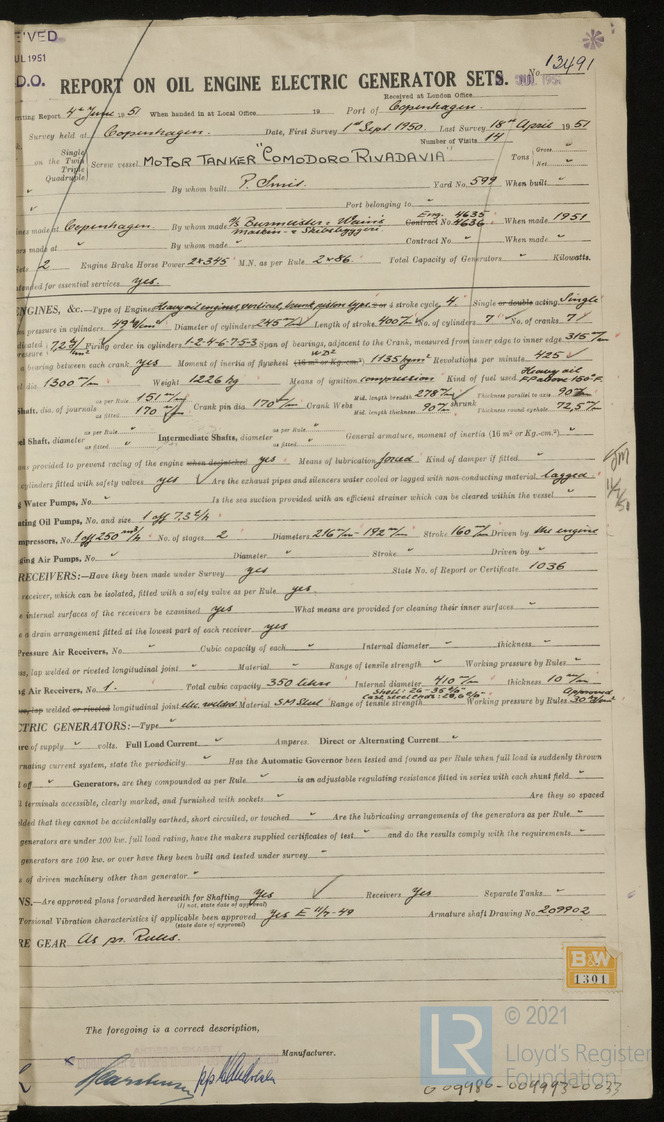 EIVED
JUL 1951
D.O.
No 13491
REPORT ON OIL ENGINE ELECTRIC GENERATOR SETS.
Received at London Office
riting Report 4th June 1951 When handed in at Local Office 19 Port of Copenhagen.
Survey held at Copenhagen. Date, First Survey 1st Sept 1950. Last Survey 18th April 1951
Number of Visits 14
on the Single Twin Triple Quadruple Screw vessel MOTOR TANKER "COMODORO RIVADAVIA" Tons Gross Net "
" By whom built P. Smit. Yard No. 599 When built "
" Port belonging to "
nes made at Copenhagen. By whom made A/S Burmeister & Wain's Maskin- & Skibsbyggeri Eng. Contract No. 4635 4636 When made 1951
ors made at " By whom made " Contract No " When made "
Sets 2 Engine Brake Horse Power 2×345 M.N. as per Rule 2×86. Total Capacity of Generators " Kilowatts.
tended for essential services yes.
ENGINES, &c.—Type of Engines Heavy oil engines, vertical, trunk piston type. 2 or 4 stroke cycle 4. Single or double acting Single
m pressure in cylinders 49 Diameter of cylinders 245 m/m Length of stroke 400 m/m No. of cylinders 7 No. of cranks 7
dicated pressure 7,2 Firing order in cylinders 1-2-4-6-7-5-3 Span of bearings, adjacent to the Crank, measured from inner edge to inner edge 315 m/m
a bearing between each crank yes Moment of inertia of flywheel (16 m² or Kg.-cm.²) 1135 kgm² Revolutions per minute 425
el dia. 1300 m/m Weight 1226 kg Means of ignition compression Kind of fuel used Heavy oil F.P. above 150° F.
Shaft, dia. of journals as per Rule 151 m/m as fitted 170 m/m Crank pin dia. 170 m/m Crank Webs Mid. length breadth 278 m/m Mid. length thickness 90 m/m shrunk Thickness parallel to axis 90 m/m Thickness round eyehole 72,5 m/m
el Shaft, diameter as per Rule as fitted " Intermediate Shafts, diameter as per Rule as fitted General armature, moment of inertia (16 m² or Kg.-cm.²) "
ns provided to prevent racing of the engine when declutched yes Means of lubrication forced Kind of damper if fitted "
cylinders fitted with safety valves yes Are the exhaust pipes and silencers water cooled or lagged with non-conducting material lagged
g Water Pumps, No. " Is the sea suction provided with an efficient strainer which can be cleared within the vessel "
ating Oil Pumps, No. and size 1 off 7.3
mpressors, No. 1 off 250 m³/h No. of stages 2 Diameters 216 m/m - 192 m/m Stroke 160 m/m Driven by the engine
ging Air Pumps, No. " Diameter " Stroke " Driven by "
RECEIVERS:—Have they been made under Survey yes State No. of Report or Certificate 1036
receiver, which can be isolated, fitted with a safety valve as per Rule yes.
e internal surfaces of the receivers be examined yes What means are provided for cleaning their inner surfaces "
e a drain arrangement fitted at the lowest part of each receiver yes
Pressure Air Receivers, No. " Cubic capacity of each " Internal diameter " thickness "
ss, lap welded or riveted longitudinal joint " Material " Range of tensile strength " Working pressure by Rules "
g Air Receivers, No 1. Total cubic capacity 350 liters Internal diameter 410 m/m thickness 10 m/m
ss, lap welded or riveted longitudinal joint elec. welded. Material S.M. Steel Range of tensile strength Working pressure by Rules Approved 30
CTRIC GENERATORS:—Type "
re of supply " volts. Full Load Current " Amperes. Direct or Alternating Current "
rnating current system, state the periodicity " Has the Automatic Governor been tested and found as per Rule when full load is suddenly thrown
d off " Generators, are they compounded as per Rule " is an adjustable regulating resistance fitted in series with each shunt field "
ll terminals accessible, clearly marked, and furnished with sockets " Are they so spaced
elded that they cannot be accidentally earthed, short circuited, or touched " Are the lubricating arrangements of the generators as per Rule "
generators are under 100 kw. full load rating, have the makers supplied certificates of test " and do the results comply with the requirements "
generators are 100 kw. or over have they been built and tested under survey "
s of driven machinery other than generator "
NS.—Are approved plans forwarded herewith for Shafting Yes Receivers Yes Separate Tanks "
(If not, state date of approval)
Torsional Vibration characteristics if applicable been approved Yes E 11/7-49 Armature shaft Drawing No. 209902
(state date of approval)
RE GEAR As pr. Rules.
B&W
1301
The foregoing is a correct description,
Manufacturer.
© 2021
LR
Lloyd's Register
Foundation
009986-009993-0033